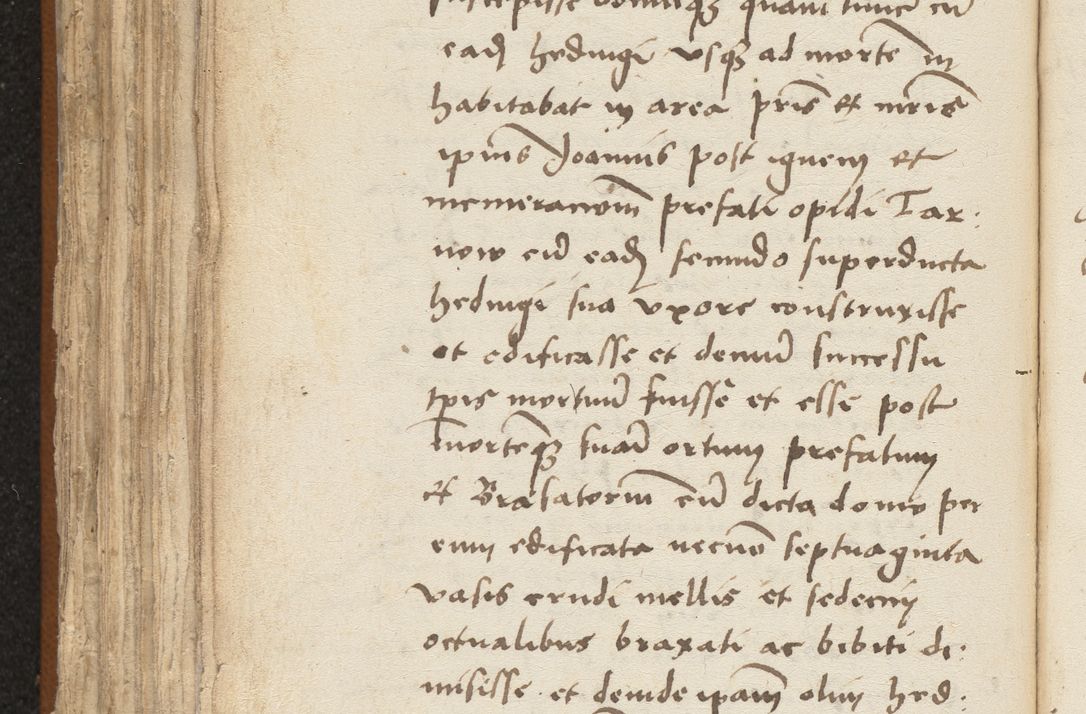 suscepisse domumq3 quam tunc cu
ead hedwigi vsq3 ad morte in
habitabat in area pris et mris
ipius Joannis post ignem et
incineracionem prefati opidi Tar:
now cu ead secundo superducta
hedwigi sua vxore construxisse
et edificasse et demu successu
tpis mortuu fuisse et esse post
morteq3 sua ortum prefatum
et Braseatorium cu dicta domo per
eum edificata necno septuaginta
vasis crudi mellis et sedecim
octualibus braxati ac bibiti de:
misisse et deinde ipam olim hed: